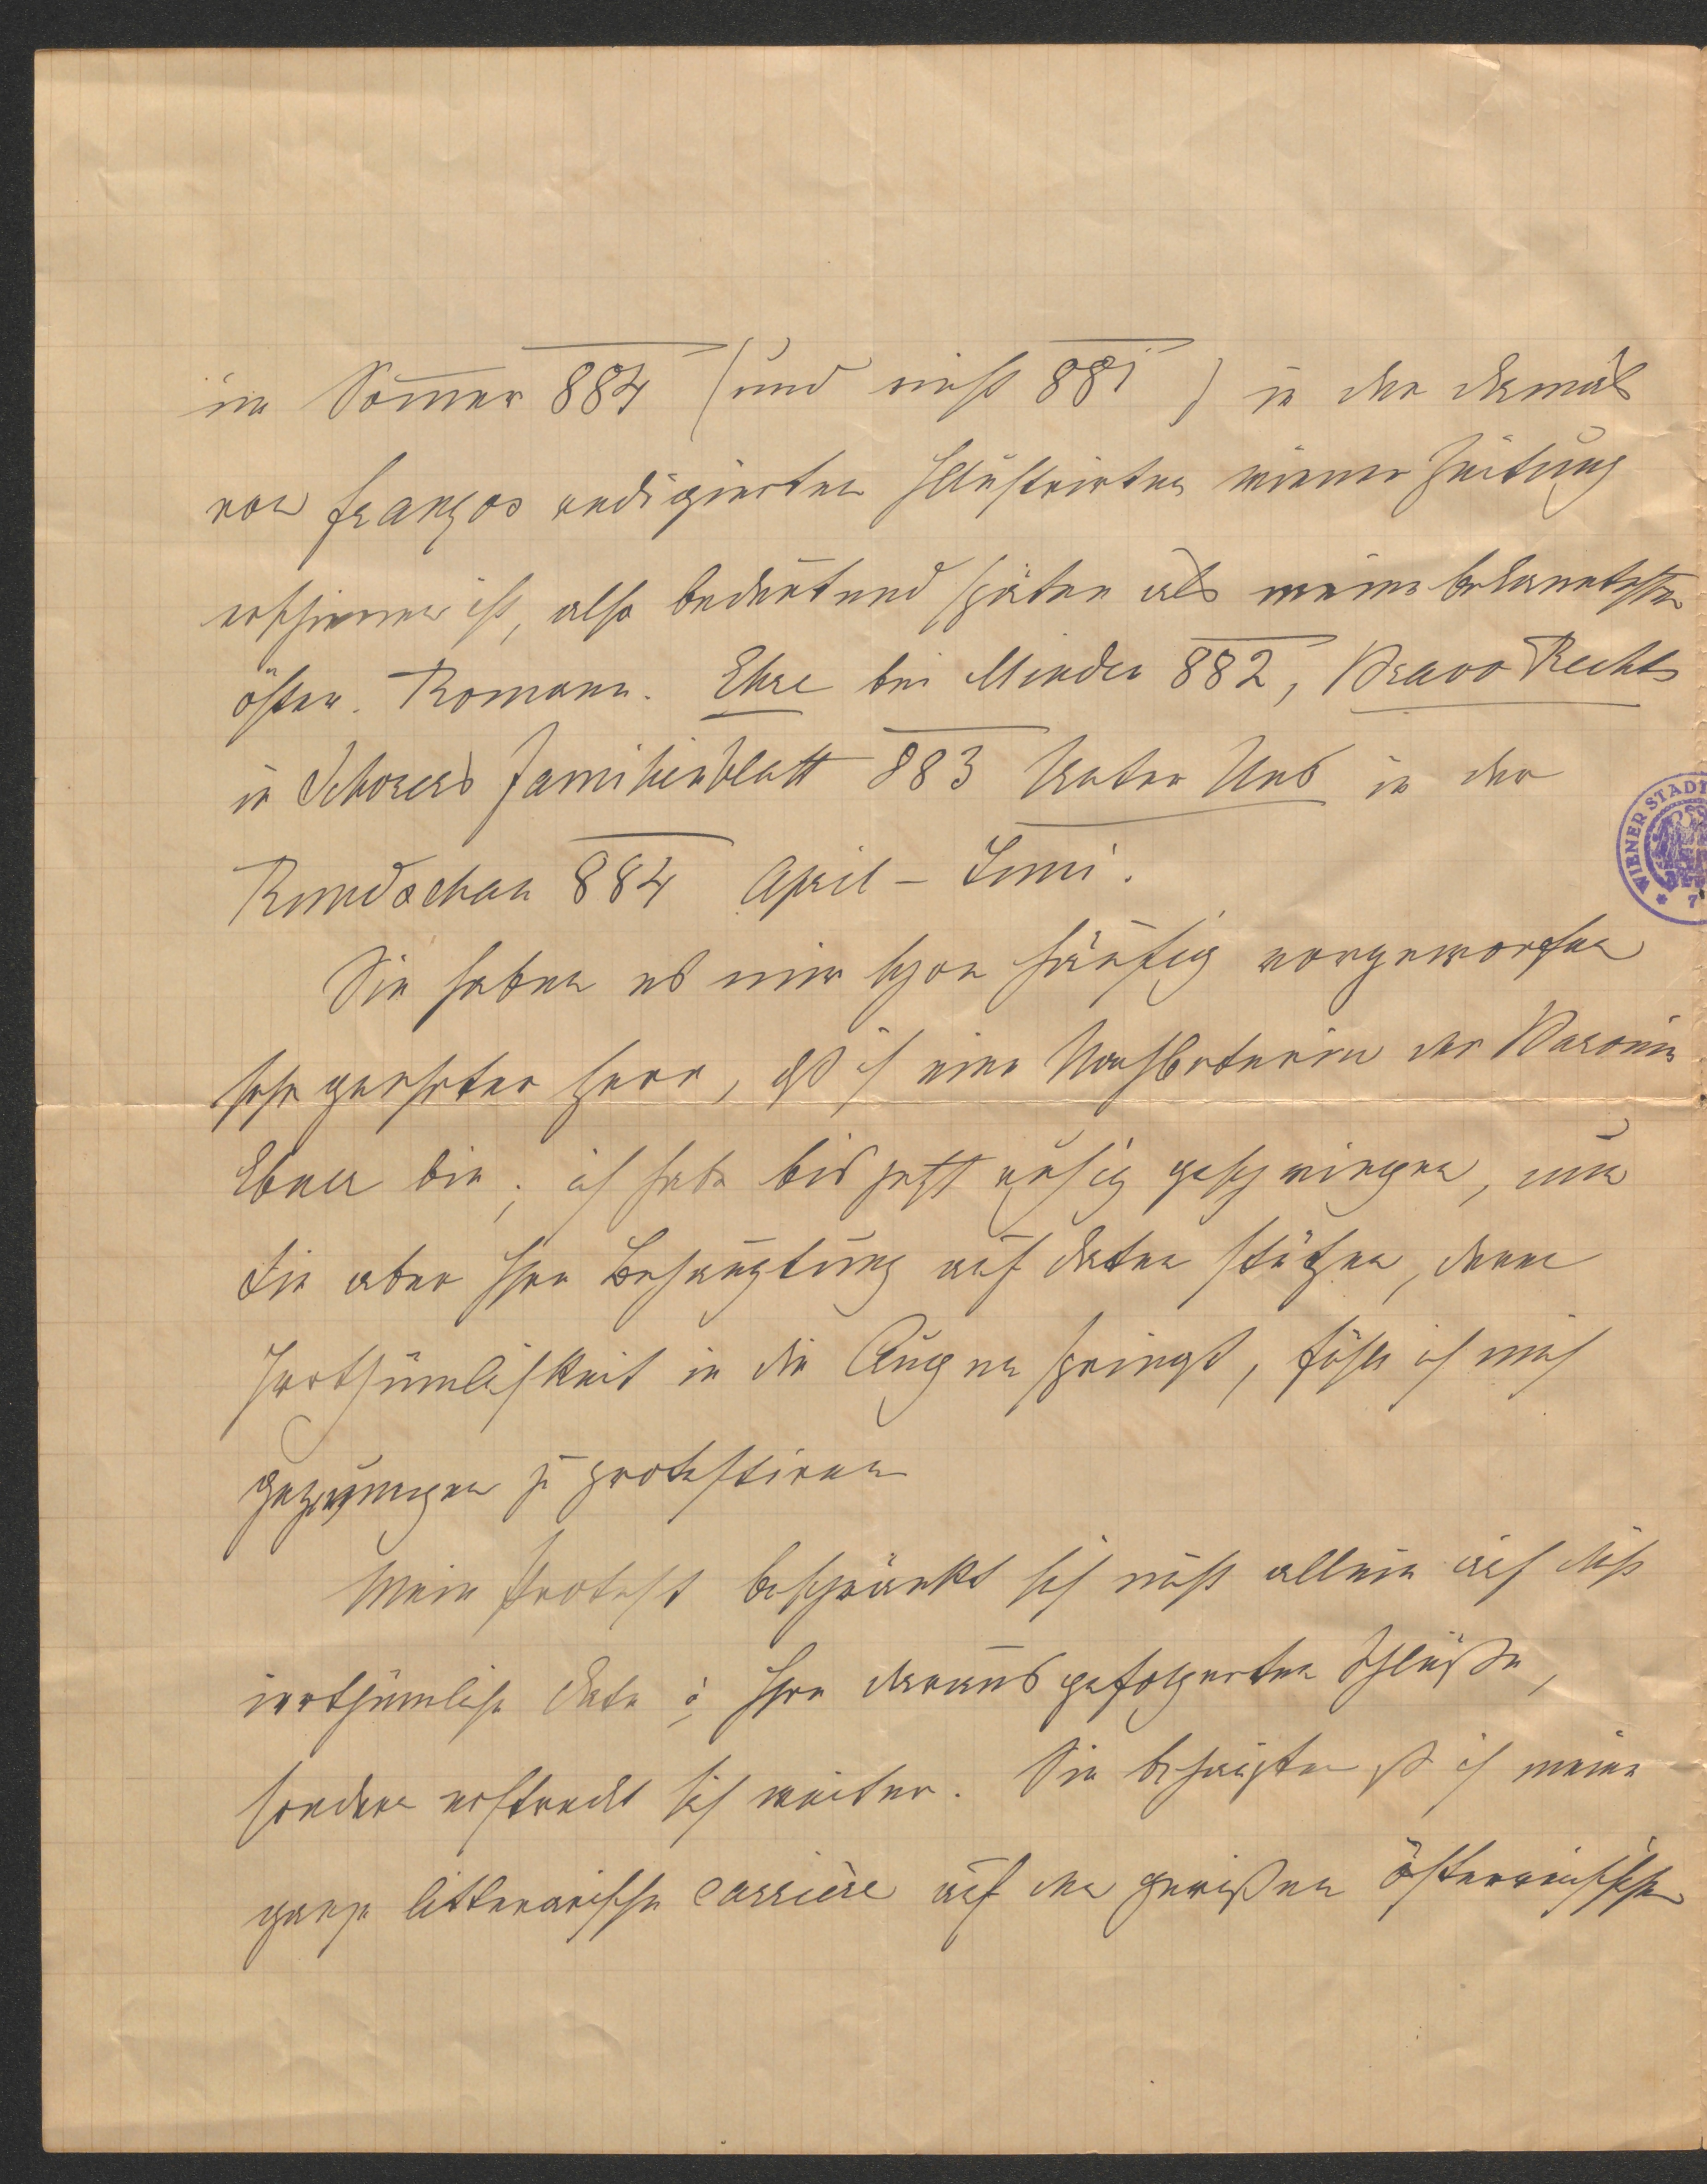 im Som̄er 884 (und nicht 881) in der damals
von Franzos redigierten Illustrirten wiener Zeitung
erschienen ist, also bedeutend später als meine bekanntesten
öster. Romane. Ehre bei Minden 882, Bravo Rechts
in Schorers Familienblatt 883 Unter Uns in der
Rundschau 884 April – Juni.
Sie haben es mir schon häufig vorgeworfen
sehr geehrter Herr, dß ich eine Nachbeterin der Baronin
Ebner bin; ich habe bis jetzt ruhig geschwiegen, nun
Sie aber Ihre Behauptung auf Daten stützen, deren
Irrthümlichkeit in die Augen springt, fühle ich mich
gezwungen zu protestiren
Mein Protest beschränkt sich nicht allein auf diese
irrthümliche Data u Ihre daraus gefolgerten Schlüße,
sondern erstreckt sich weiter. Sie behaupten ß ich meine
ganze litterarische Carrière auf den gewißen österreichischen
WIENER STADT
* 7